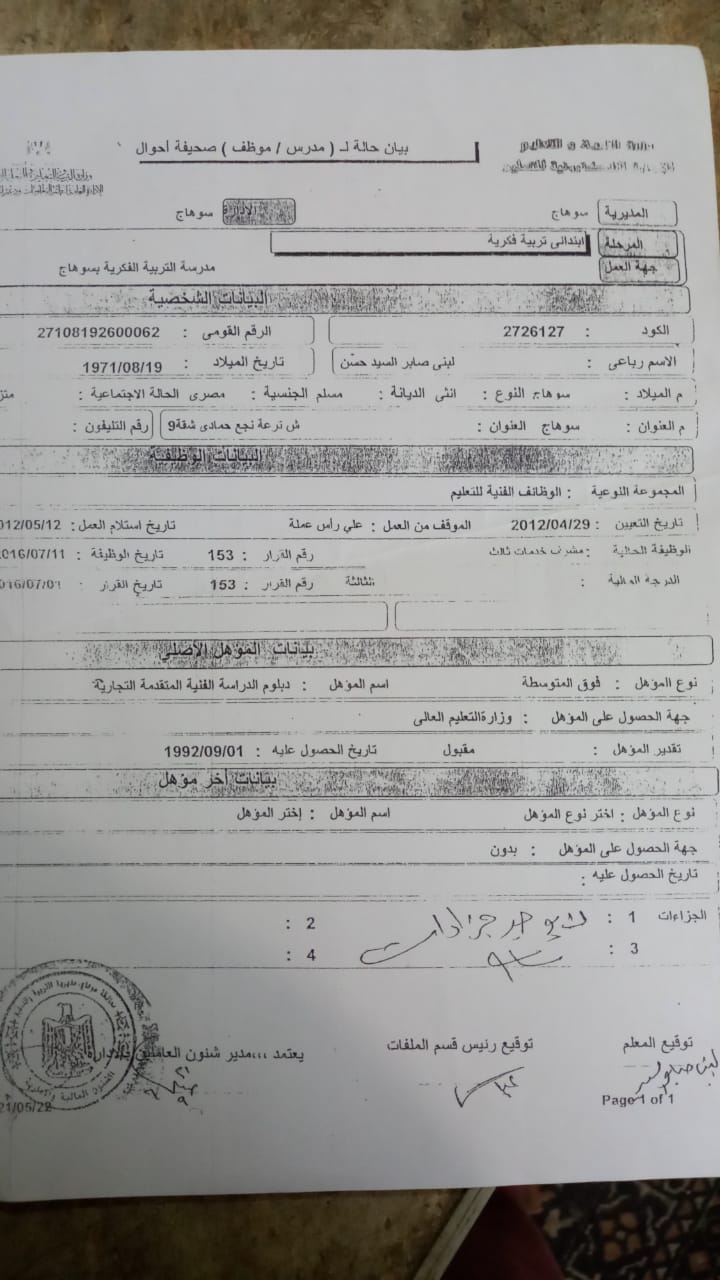 بيان حالة لـ ( مدرس / موظف ) صحيفة أحوال
المديرية سوهاج الإدارة سوهاج
المرحلة ابتدائى تربية فكرية
جهة العمل مدرسة التربية الفكرية بسوهاج
البيانات الشخصية
الكود : 2726127 الرقم القومى : 27108192600062
الاسم رباعى : لبنى صابر السيد حسن تاريخ الميلاد : 1971/08/19
م الميلاد : سوهاج النوع : انثى الديانة : مسلم الجنسية : مصرى الحالة الاجتماعية :
م العنوان : سوهاج العنوان : ش ترعة نجع حمادى شقة9 رقم التليفون :
البيانات الوظيفية
المجموعة النوعية : الوظائف الفنية للتعليم
تاريخ التعيين : 2012/04/29 الموقف من العمل : علي رأس عملة تاريخ استلام العمل : 012/05/12
الوظيفة الحالية : مشرف خدمات ثالث رقم القرار : 153 تاريخ الوظيفة : 016/07/11
الدرجة المالية : الثالثة رقم القرار : 153 تاريخ القرار :
بيانات المؤهل الأصلي
نوع المؤهل : فوق المتوسطة اسم المؤهل : دبلوم الدراسة الفنية المتقدمة التجارية
جهة الحصول على المؤهل : وزارةالتعليم العالى
تقدير المؤهل : مقبول تاريخ الحصول عليه : 1992/09/01
بيانات أخر مؤهل
نوع المؤهل : اختر نوع المؤهل اسم المؤهل : إختر المؤهل
جهة الحصول على المؤهل : بدون
تاريخ الحصول عليه :
الجزاءات 1 : لا يوجد جزاءات 2 :
3 : 4 :
توقيع المعلم توقيع رئيس قسم الملفات يعتمد ،،،مدير شئون العاملين بالادارة
Page 1 of 1
21/05/22